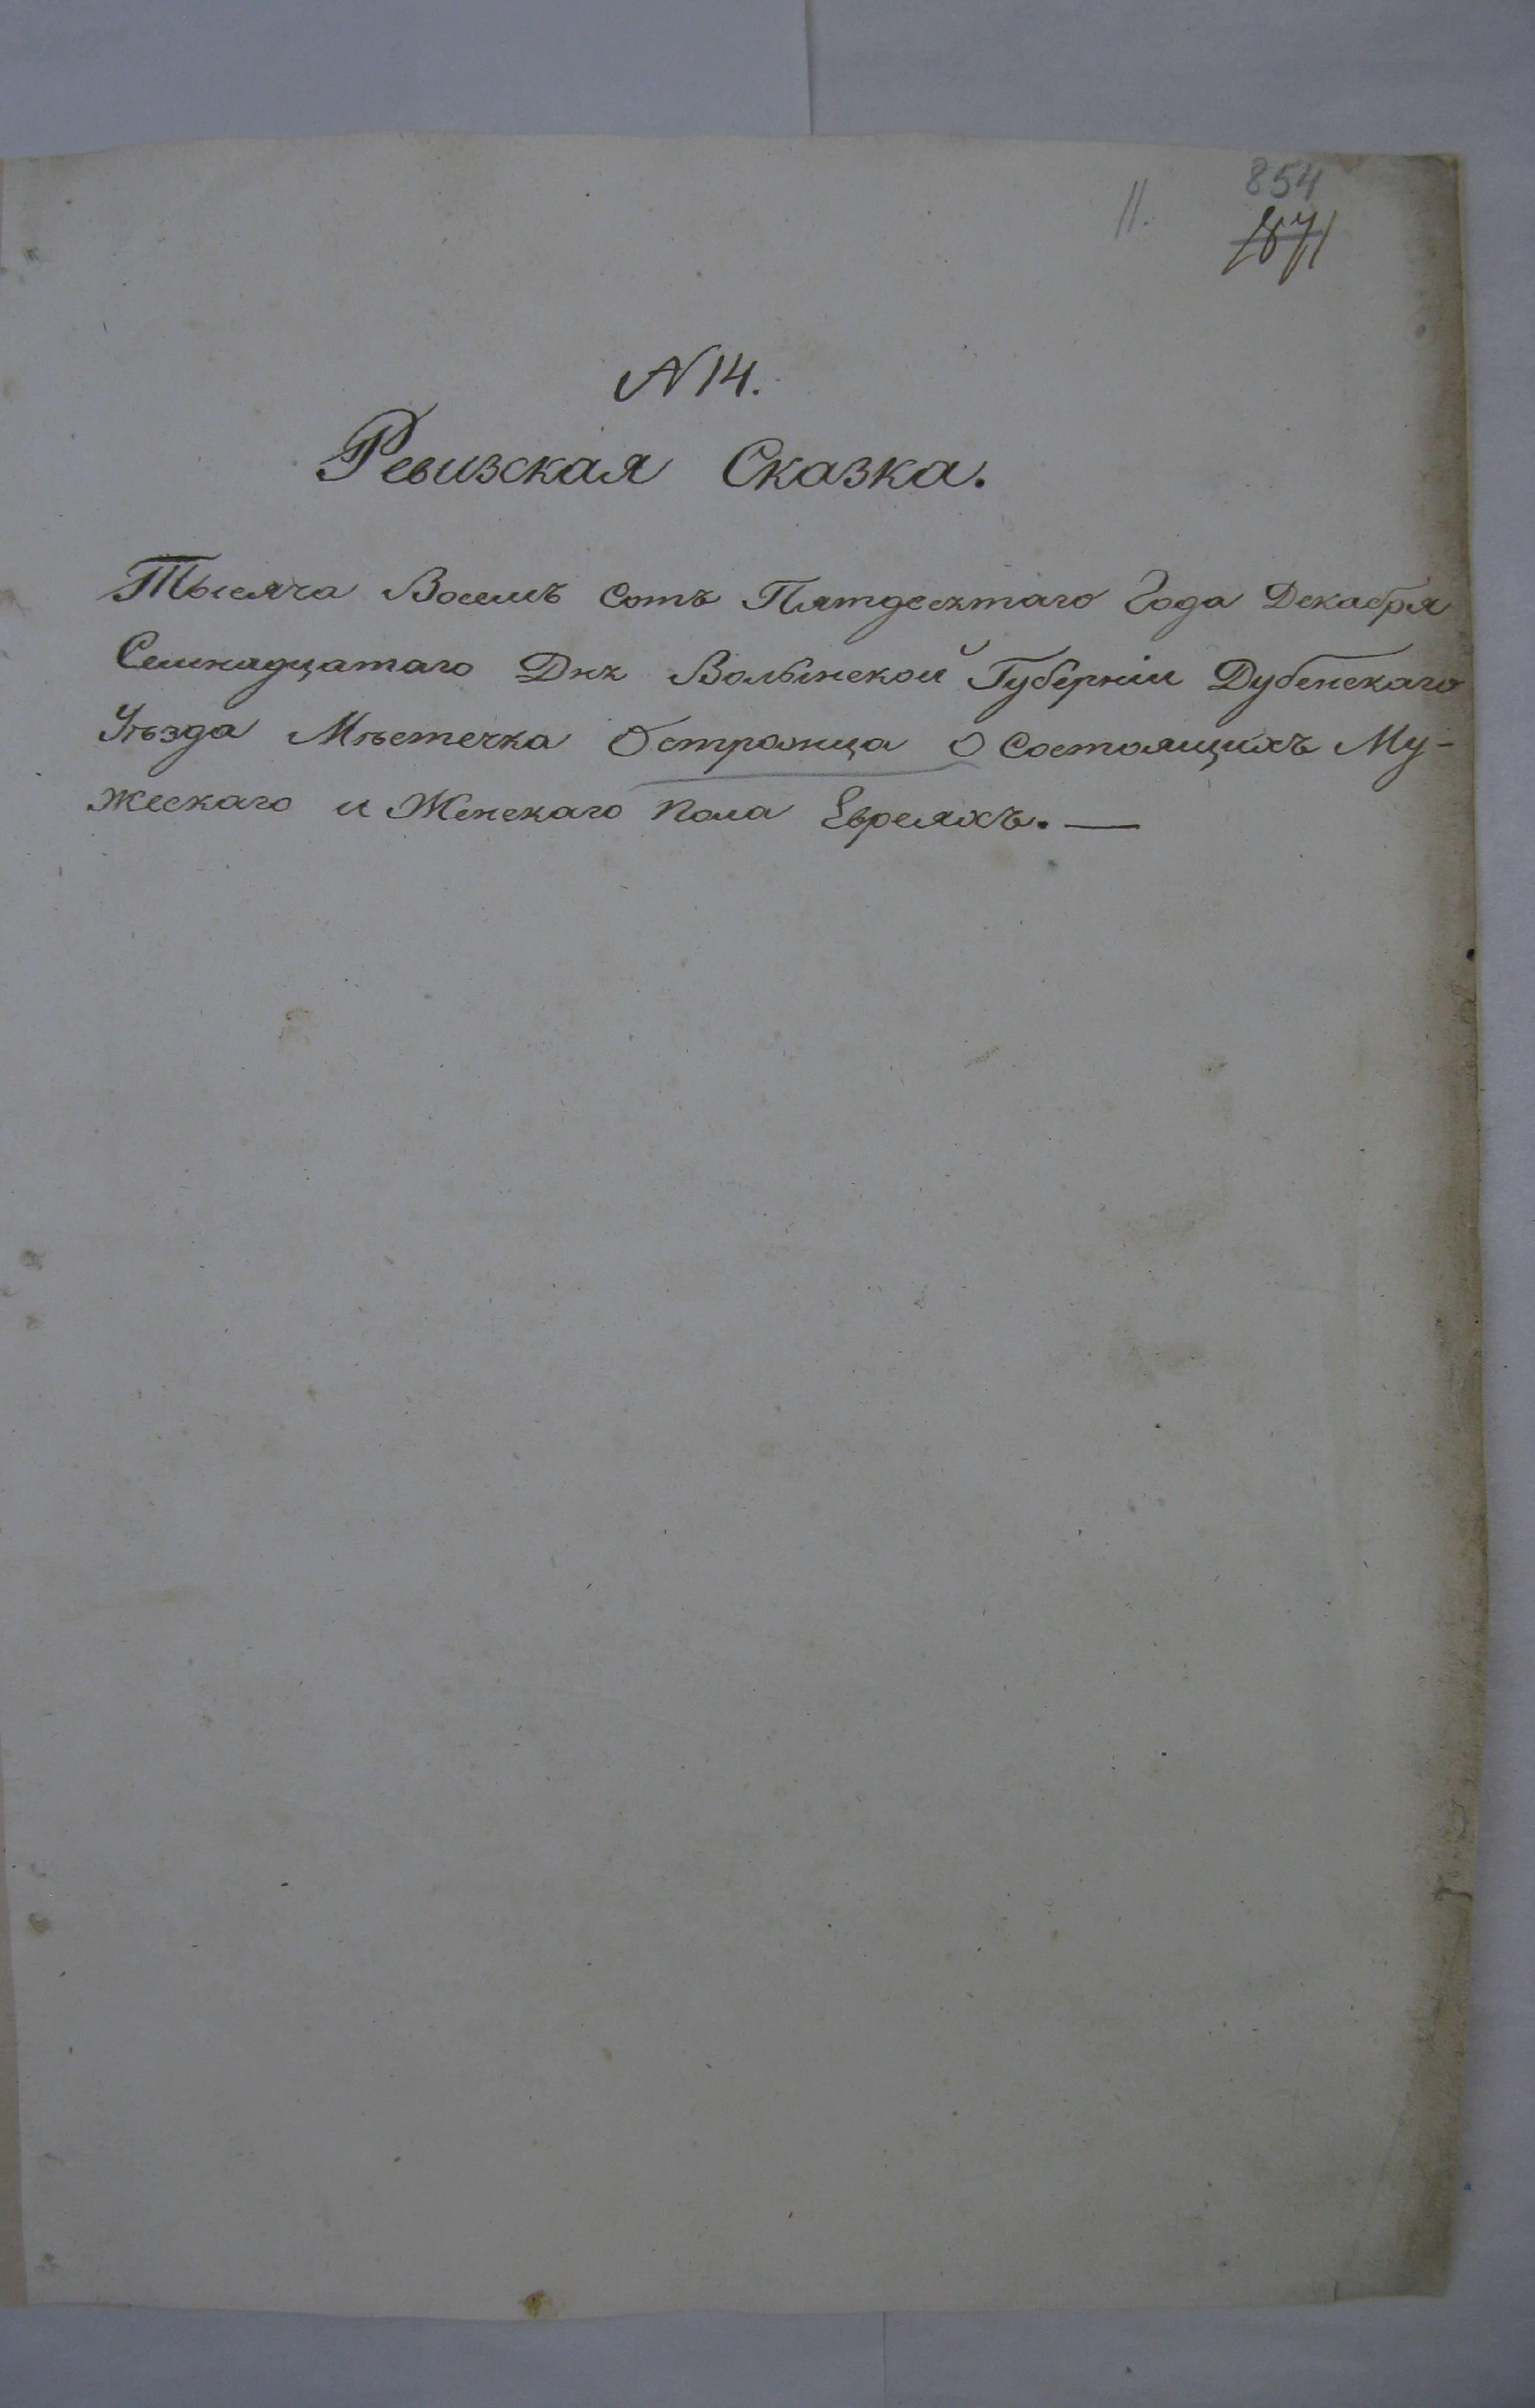 854
11.
1871
N 14.
Ревизская Сказка.
Тысяча Восемь Сотъ Пятдесятаго Года Декабря
Семнадцатаго Дня Волынской Губерніи Дубенскаго
Уѣзда Мѣстечка Остражца О Состоящихъ Му-
жескаго и Женскаго пола Евреяхъ. —